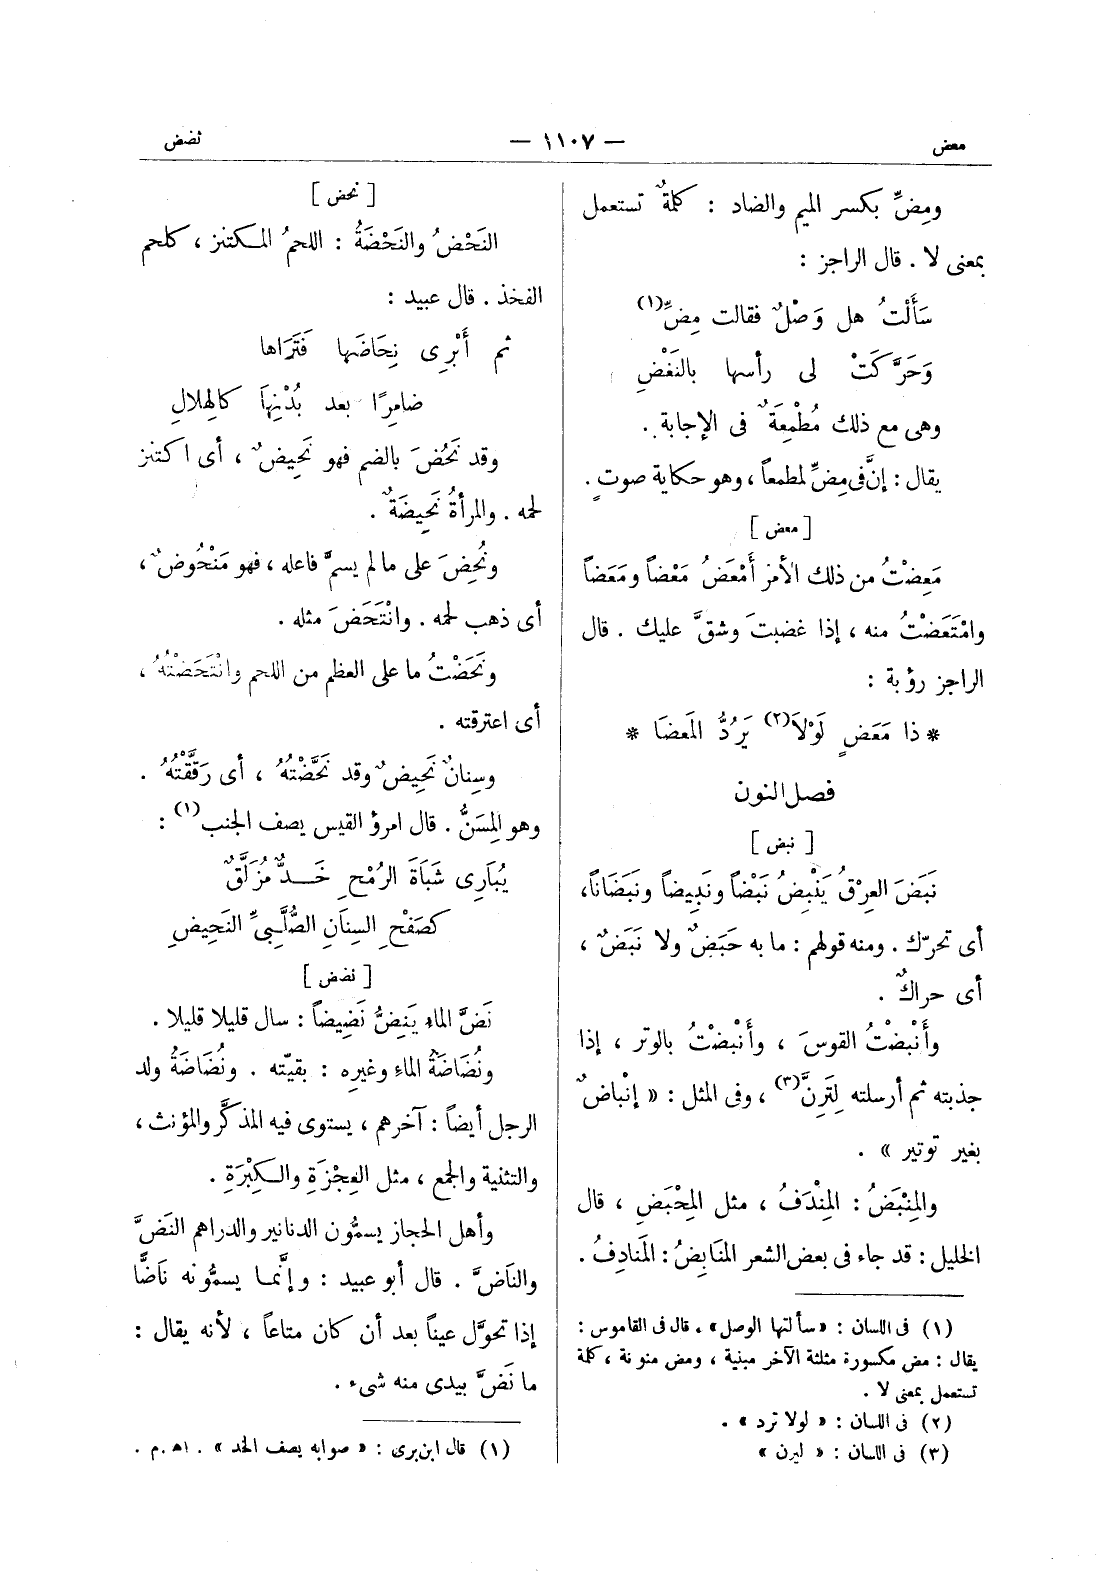 معض
— ١١٠٧ —
نضض
ومِضِّ بكسر الميم والضاد : كلمةٌ تستعمل
بمعنى لا . قال الراجز :
سَأَلْتُ هل وَصْلٌ فقالت مِضِّ(١)
وَحَرَّكَتْ لى رأسها بالنَغْضِ
وهى مع ذلك مُطْمِعَةٌ فى الإجابة .
يقال : إنَّ فى مِضِّ لمطمعاً ، وهو حكاية صوتٍ .
[ معض ]
مَعِضْتُ من ذلك الأمر أَمْعَضُ مَعْضاً ومَعَضاً
وامْتَعَضْتُ منه ، إذا غضبتَ وشقَّ عليك . قال
الراجز رؤبة :
* ذا مَعَضٍ لَوْلَا(٢) يَرُدُّ المَعضَا *
فصل النون
[ نبض ]
نَبَضَ العِرْقُ يَنْبِضُ نَبْضاً ونَبِيضاً ونَبَضَاناً،
أى تحرّك . ومنه قولهم : ما به حَبَضٌ ولا نَبَضٌ ،
أى حراكٌ .
وأَنْبضْتُ القوسَ ، وأَنْبضْتُ بالوتر ، إذا
جذبته ثم أرسلته لِتَرِنَّ(٣) ، وفى المثل : « إنْباضٌ
بغير توتير » .
والمِنْبَضُ : المِنْدَفُ ، مثل المِحْبَضِ ، قال
الخليل : قد جاء فى بعض الشعر المنَابِضُ : المَنَادِفُ .
(١) فى اللسان : «سألتها الوصل» . قال فى القاموس :
يقال : مض مكسورة مثلثة الآخر مبنية ، ومض منونة ، كلمة
تستعمل بمعنى لا .
(٢) فى اللسان : « لولا ترد » .
(٣) فى اللسان : « ليرن »
[ نحض ]
النَحْضُ والنَحْضَةُ : اللحمُ المكتنز ، كلحم
الفخذ . قال عبيد :
ثم أَبْرِى نِحَاضَها فَتَرَاها
ضامِرًا بعد بُدْنِهَا كالهِلالِ
وقد نَحُضَ بالضم فهو نَحِيضٌ ، أى اكتنز
لحمه . والمرأةُ نَحِيضَةٌ .
ونُحِضَ على ما لم يسمَّ فاعله ، فهو مَنْحُوضٌ ،
أى ذهب لحمه . وانْتَحَضَ مثله .
ونَحَضْتُ ما على العظم من اللحم وانْتَحَضْتُهُ ،
أى اعترقته .
وسِنانٌ نَحِيضٌ وقد نَحَّضْتُهُ ، أى رَقَّقْتُهُ .
وهو المِسَنُّ . قال امرؤ القيس يصف الجنب(١) :
يُبَارِى شَبَاةَ الرُمْحِ خَدٌّ مُزَلَّقٌ
كصَفْحِ السِنَانِ الصُلَّبِىِّ النَحِيضِ
[ نضض ]
نَضَّ الماءِ يَنِضُّ نَضِيضاً : سال قليلا قليلا .
ونُضَاضَةُ الماءِ وغيرِه : بقيّته . ونُضَاضَةُ ولد
الرجل أيضاً : آخرهم ، يستوى فيه المذكَّر والمؤنث ،
والتثنية والجمع ، مثل العِجْزَةِ والكِبْرَةِ .
وأهل الحجاز يسمُّون الدنانير والدراهم النَضَّ
والنَاضَّ . قال أبو عبيد : وإنَّما يسمُّونه نَاضًّا
إذا تحوَّل عيناً بعد أن كان متاعاً ، لأنه يقال :
ما نَضَّ بيدى منه شىء .
(١) قال ابن برى : « صوابه يصف الخد » . اهـ.م .